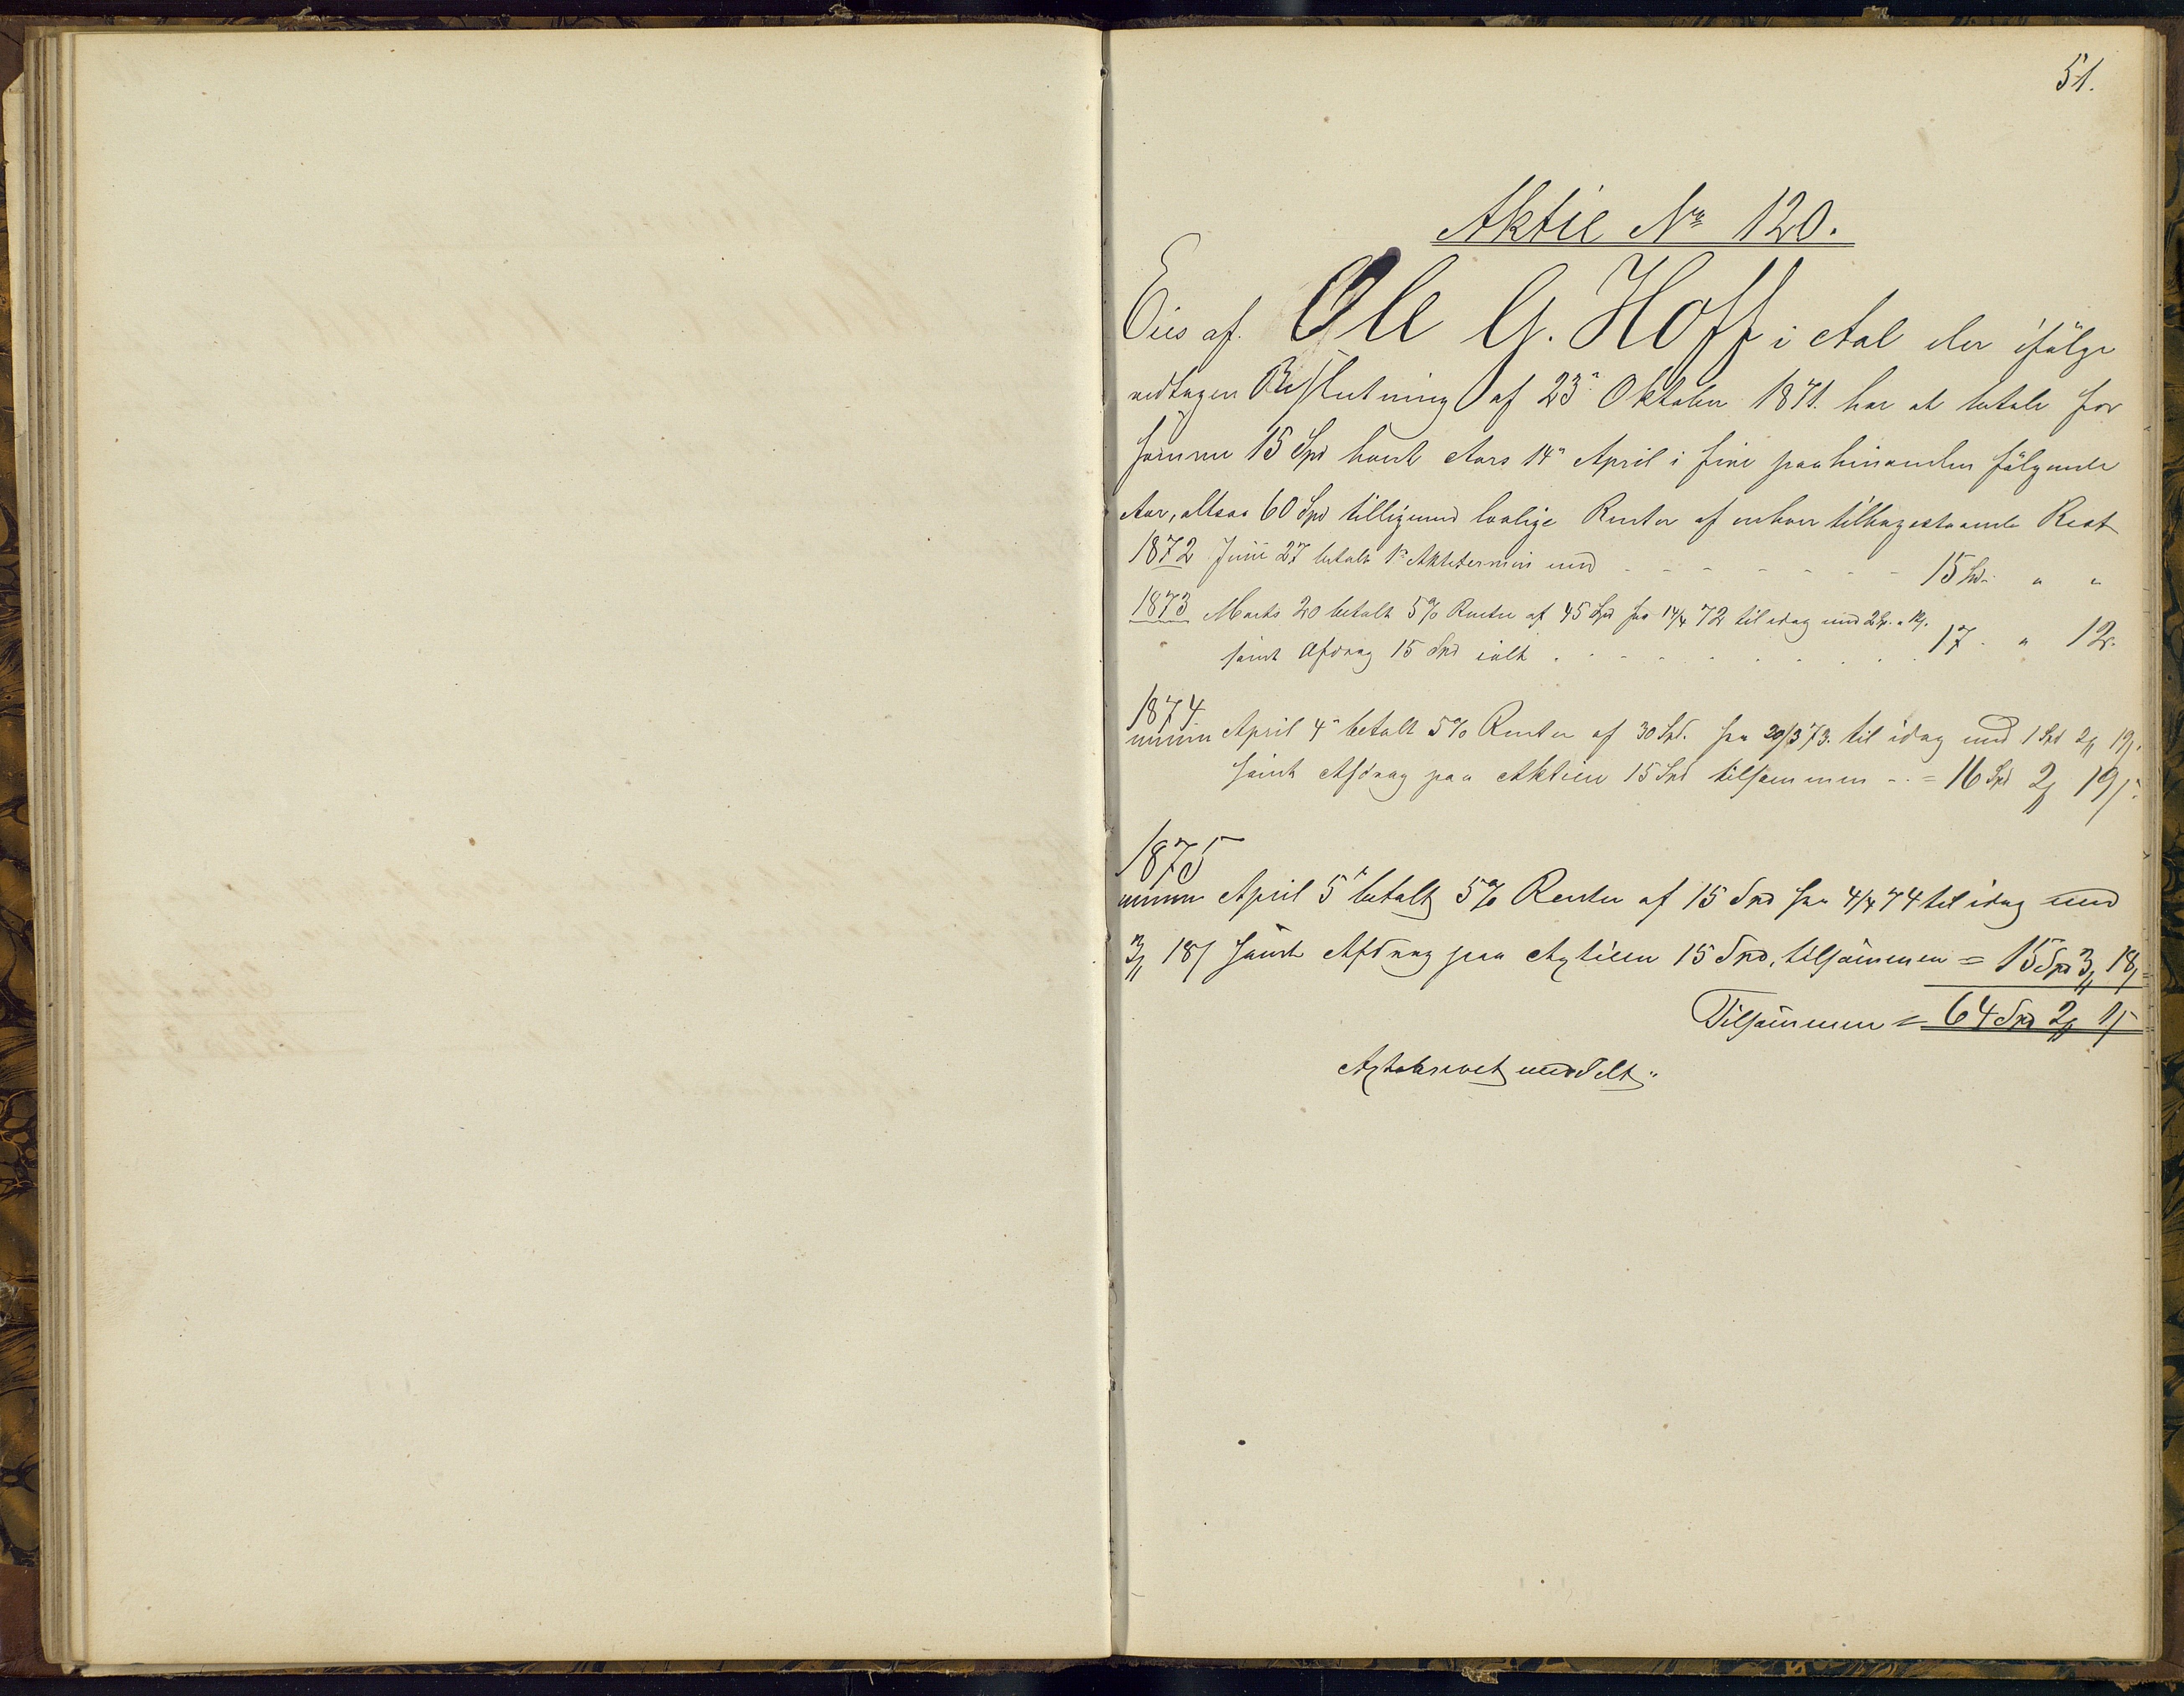 51.
Aktie No 120.
Eies af. Ole G. Hoff i Aal der ifølge
vedtagen Beslutning af 23de Oktober 1871. har at betale for
samme 15 Spd hvert Aars 14de April i fire paahinanden følgende
Aar, altsaa 60 Spd tilligemed lovlige Renter af enhver tilbagestaaende Rest
1872 Juni 27 betalt 1ste Aktietermin med - - - - - - - 15 Spd. " "
1873 Marts 20 betalt 5% Renter af 45 Spd fra 14/4 72 til idag med 2 Sp. " 12 s.
samt Afdrag 15 Spd ialt . . . . . . . . . 17. " 12.
1874.
April 4de betalt 5% Renter af 30 Spd. fra 20/3 73. til idag med 1 Spd 2 19.
samt Afdrag paa Aktien 15 Spd tilsammen - . = 16 Spd 2 19 s.
1875
April 5te betalt 5% Renter af 15 Spd fra 4/4 74 til idag med
3 18 s samt Afdrag paa Axtien 15 Spd, tilsammen = 15 Spd 3 18 s =
Tilsammen = 64 Spd 2 1 s
Axtebrevet meddelt.